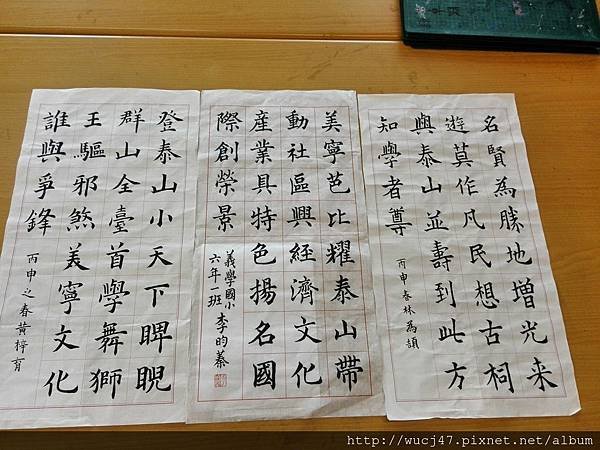 名賢為勝地增光来
遊莫作凡民想古祠
與泰山並壽到此方
知學者尊
丙申春林為頡
美寧芭比耀泰山帶
動社區興經濟文化
產業具特色揚名國
際創榮景
義學國小
六年一班 李昀蓁
登泰山小天下睥睨
群山全臺首學舞獅
王驅邪煞美寧文化
誰與爭鋒
丙申之春黃梓育
http://wucj47.pixnet.net/album